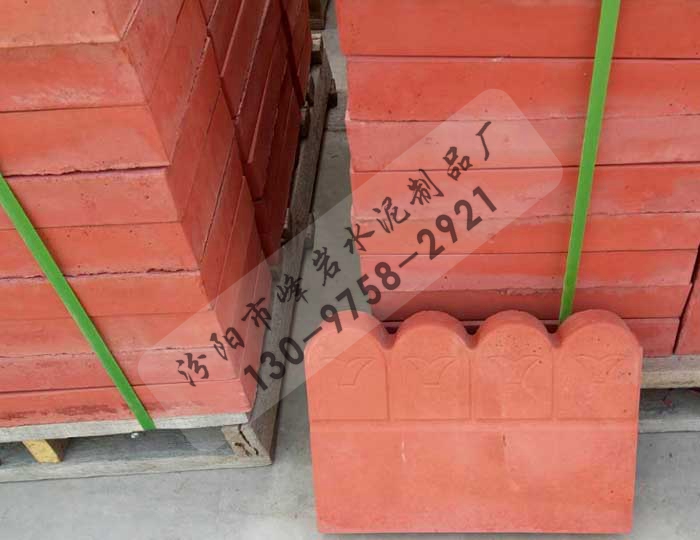 汾阳市峰岩水泥制品厂
130-9758-2921